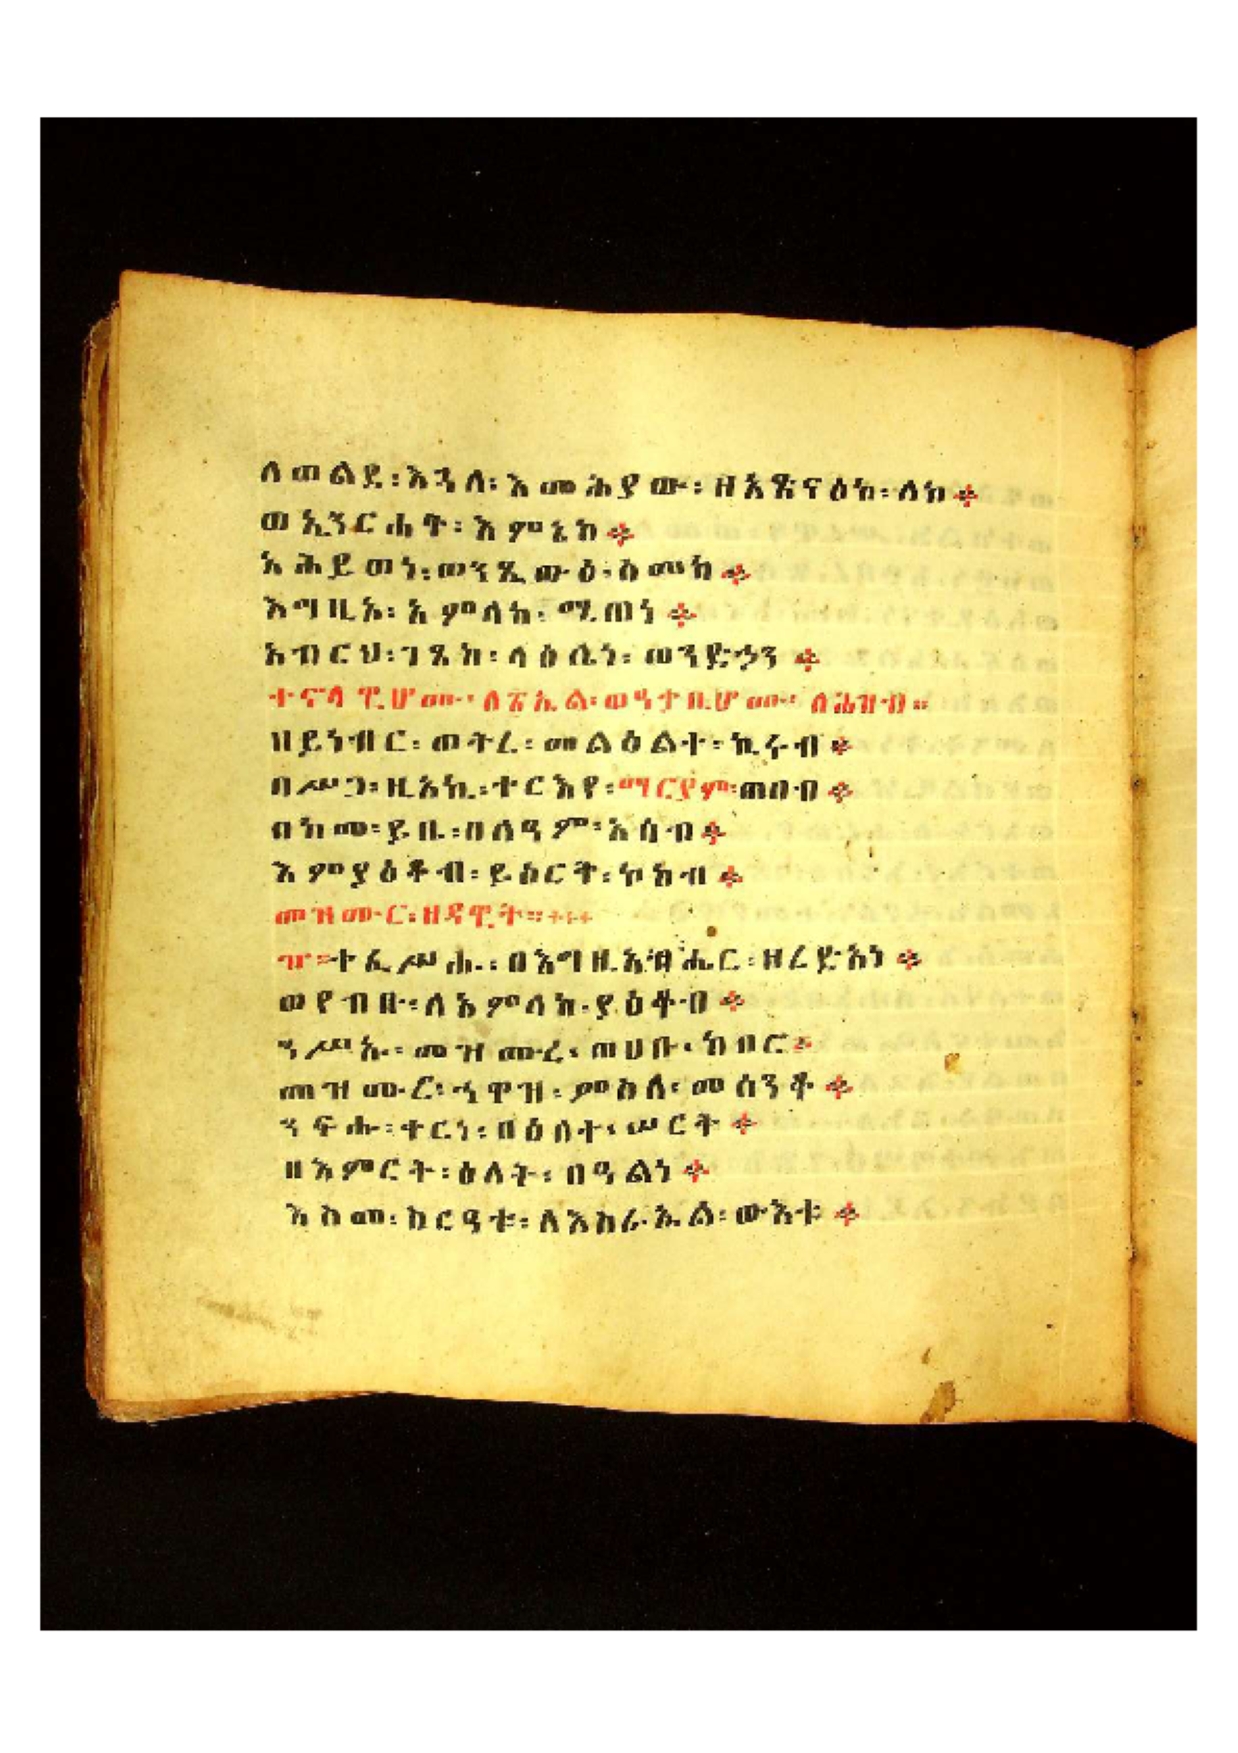 ለወልደ፡እጓለ፡እመሕያው፡ዘአጽናዕከ፡ለከ፨
ወኢንርሐት፡እምኔከ፨
አሕይወነ፡ወንጼውዕ፡ስመከ፨
እግዚአ፡አምላከ፡ሚጠነ፨
አብርህ፡ገጸከ፡ላዕሌነ፡ወንድኅን፨
ዘይነብር፡ወትረ፡መልዕልተ፡ኪሩብ፨
በሥጋ፡ዚአኪ፡ተርእየ፡ማርያም፡ጠቢብ፨
በከመ፡ይቤ፡በለዓም፡
እምያዕቆብ፡ይሰርቅ፡ኮከብ፨
መዝሙር፡ዘዳዊት፡፡
፹፡ተፈሥሑ፡በእግዚአብሔር፡ዘረድአነ፨
ወየብቡ፡ለአምላከ፡ያዕቆብ፨
ንሥኡ፡መዝሙረ፡ወሀቡ፡ከበሮ፨
መዝሙር፡ሐዋዝ፡ምስለ፡መሰንቆ፨
ንፍሑ፡ቀርነ፡በዕለተ፡ሠርቅ፨
በእምርት፡ዕለት፡በዓልነ፨
እስመ፡ሥርዓቱ፡ለእስራኤል፡ውእቱ፨